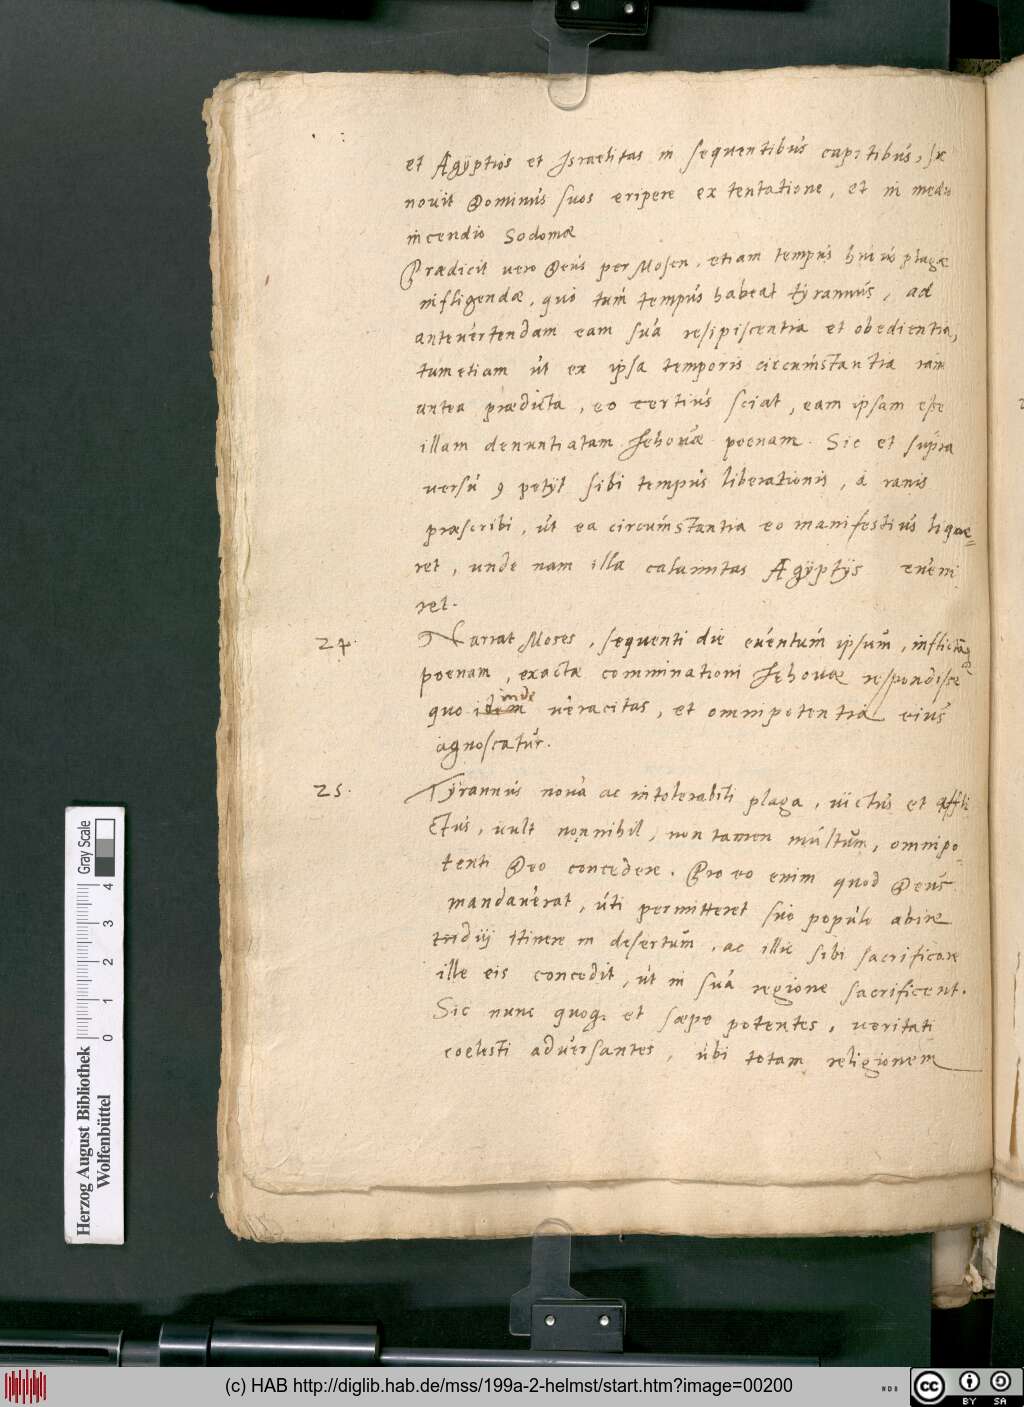 et Ægÿptios et Israelitas in sequentibus capitibus, sic
novit Dominus suos eripere ex tentatione, et in medio
incendio Sodomæ
Prædicit vero Deus per Mosen, etiam tempus huius plagæ
infligendæ, quo tum tempus habeat tyrannus, ad
antevertendam eam sua resipiscentia et obedientia,
tum etiam ut ex ipsa temporis circumstantia iam
antea prædicta, eo certius sciat, eam ipsam esse
illam denuntiatam Jehovæ poenam. Sic et supra
versu 9 petÿt sibi tempus liberationis, à ranis
præscribi, ut ea circumstantia eo manifestius lique=
ret, unde nam illa calamitas Ægÿptÿs eveni
ret.
24.
Narrat Moses, sequenti die eventum ipsum, inflictamq
poenam, exactæ comminationi Jehovæ respondisse
quo idem inde veracitas, et omnipotentia eius
agnoscatur.
25.
Tÿrannus nova ac intolerabili plaga, victus et affli
ctus, vult nonnihil, non tamen multum, omnipo-
tenti Deo concedere. Pro eo enim quod Deus
mandaverat, uti permitteret suo populo abire
tridui itinere in desertum, ac illic sibi sacrificare
ille eis concedit, ut in sua regione sacrificent.
Sic nunc quoq. et sæpe potentes, veritati
coelesti adversantes, ubi totam religionem
Herzog August Bibliothek
Wolfenbüttel
0 1 2 3 4
Gray Scale
(c) HAB http://diglib.hab.de/mss/199a-2-helmst/start.htm?image=00200
cc BY SA